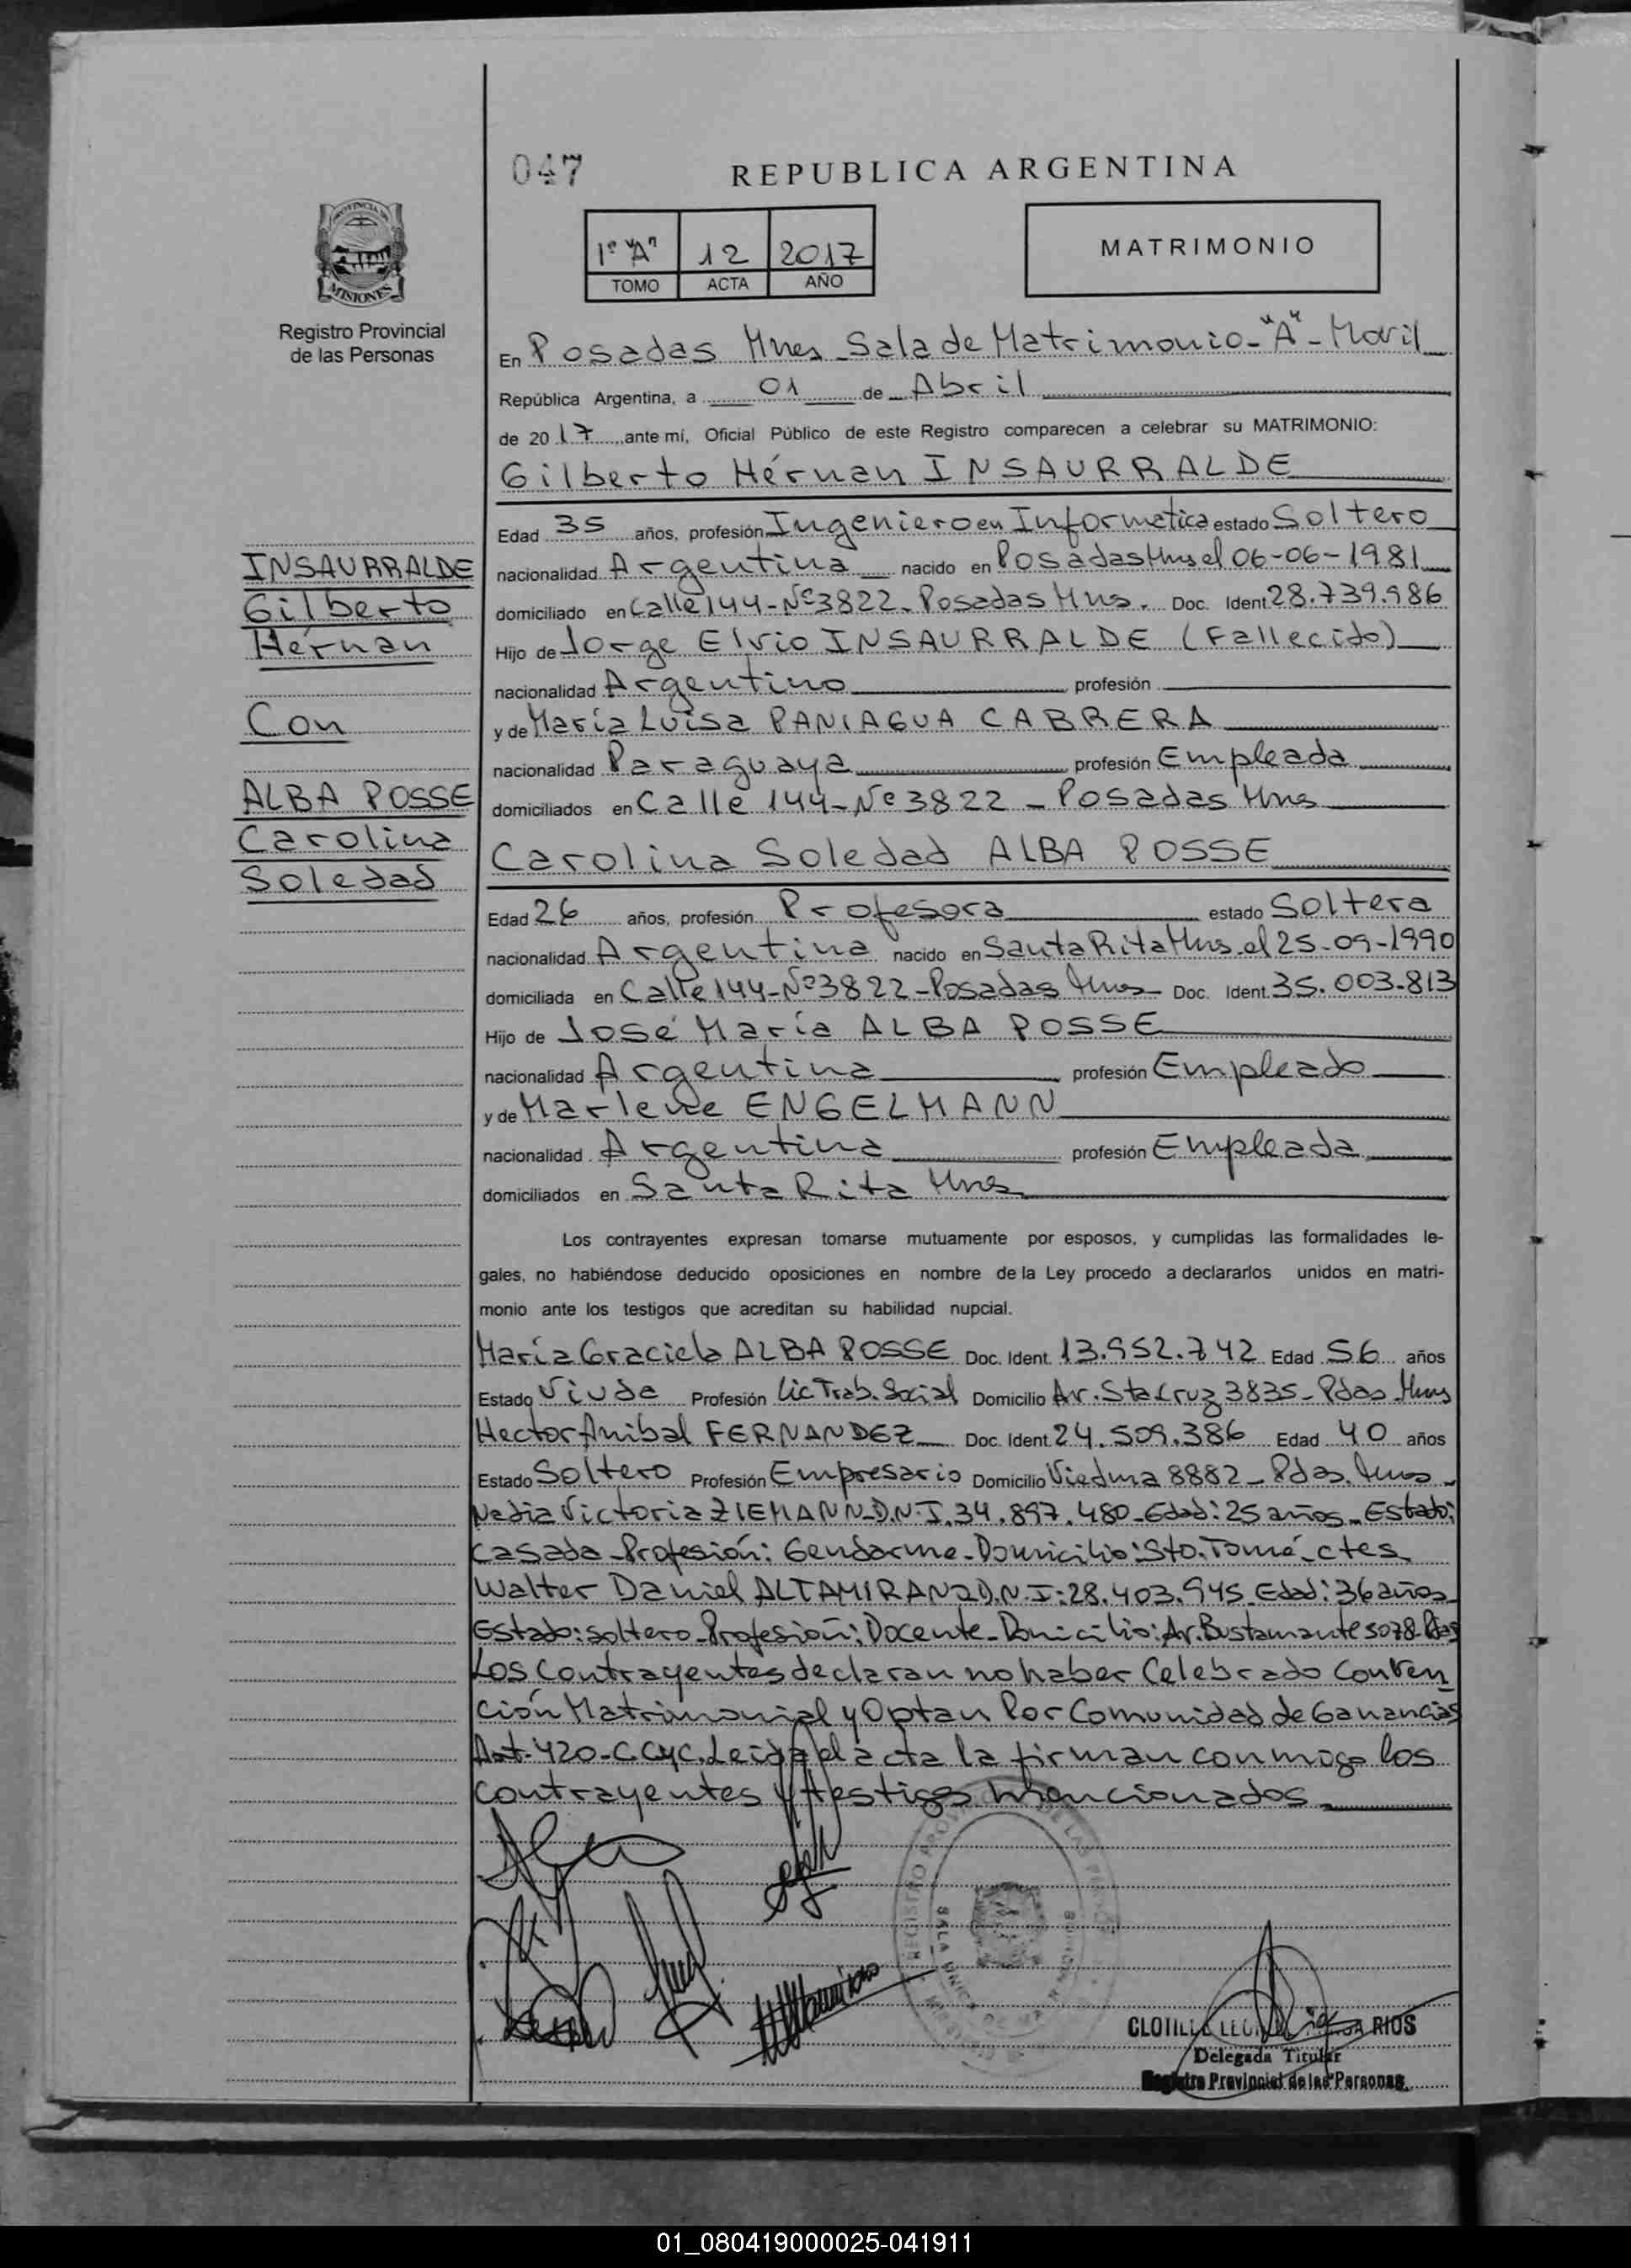 047
REPUBLICA ARGENTINA
PROVINCIA DE
MISIONES
Registro Provincial
de las Personas
1º "A" 12 2017
TOMO ACTA AÑO
MATRIMONIO
En Posadas Mnes Sala de Matrimonio - "A" - Movil
República Argentina, a 01 de Abril
de 2017 ante mí, Oficial Público de este Registro comparecen a celebrar su MATRIMONIO:
Gilberto Hérnan INSAURRALDE
Edad 35 años, profesión Ingeniero en Informatica estado Soltero
nacionalidad Argentina nacido en Posadas Mns el 06-06-1981
domiciliado en Calle 144-Nº3822. Posadas Mns. Doc. Ident. 28.739.986
Hijo de Jorge Elvio INSAURRALDE (Fallecido)
nacionalidad Argentino profesión
y de María Luisa PANIAGUA CABRERA
nacionalidad Paraguaya profesión Empleada
domiciliados en Calle 144-Nº3822 - Posadas Mns
INSAURRALDE
Gilberto
Hérnan
Con
ALBA POSSE
Carolina
Soledad
Carolina Soledad ALBA POSSE
Edad 26 años, profesión Profesora estado Soltera
nacionalidad Argentina nacido en Santa Rita Mns. el 25-09-1990
domiciliada en Calle 144-Nº3822-Posadas Mns Doc. Ident. 35.003.813
Hijo de José María ALBA POSSE
nacionalidad Argentina profesión Empleado
y de Marlene ENGELMANN
nacionalidad Argentina profesión Empleada
domiciliados en Santa Rita Mnes
Los contrayentes expresan tomarse mutuamente por esposos, y cumplidas las formalidades le-
gales, no habiéndose deducido oposiciones en nombre de la Ley procedo a declararlos unidos en matri-
monio ante los testigos que acreditan su habilidad nupcial.
María Graciela ALBA POSSE Doc. Ident. 13.952.742 Edad 56 años
Estado Viuda Profesión Lic Trab. Social Domicilio Av. Sta Cruz 3835 - Pdas Mns
Hector Anibal FERNANDEZ Doc. Ident. 24.509.386 Edad 40 años
Estado Soltero Profesión Empresario Domicilio Viedma 8882 - Pdas. Mns
Nadia Victoria ZIEMANN-D.N.I. 34.897.480-Edad: 25 años - Estado:
Casada-Profesión: Gendarme-Domicilio: Sto. Tomé-Ctes
Walter Daniel ALTAMIRANO D.N.I: 28.403.945 Edad: 36 años
Estado: soltero-Profesión: Docente-Domicilio: Av. Bustamante 5078-Pdas
Los Contrayentes declaran no haber Celebrado Conven
ción Matrimonial y Optan Por Comunidad de Ganancias
Art-420-C.CyC. Leida el acta la firman conmigo los
contrayentes y testigos mencionados
Delegada Titular
Registro Provincial de las Personas
01_080419000025-041911